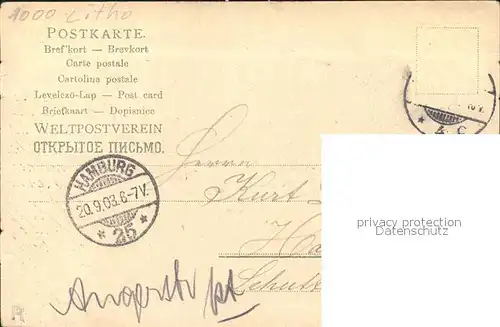 1000 Litho
POSTKARTE.
Bref'kort — Brevkort
Carte postale
Cartolina postale
Levelező-Lap — Post card
Briefkaart — Dopisnice
WELTPOSTVEREIN
ОТКРЫТОЕ ПИСЬМО.
HAMBURG
20.9.03.6-7V.
* 25 *
Herrn
Kurt
privacy protection
Ha
Schult